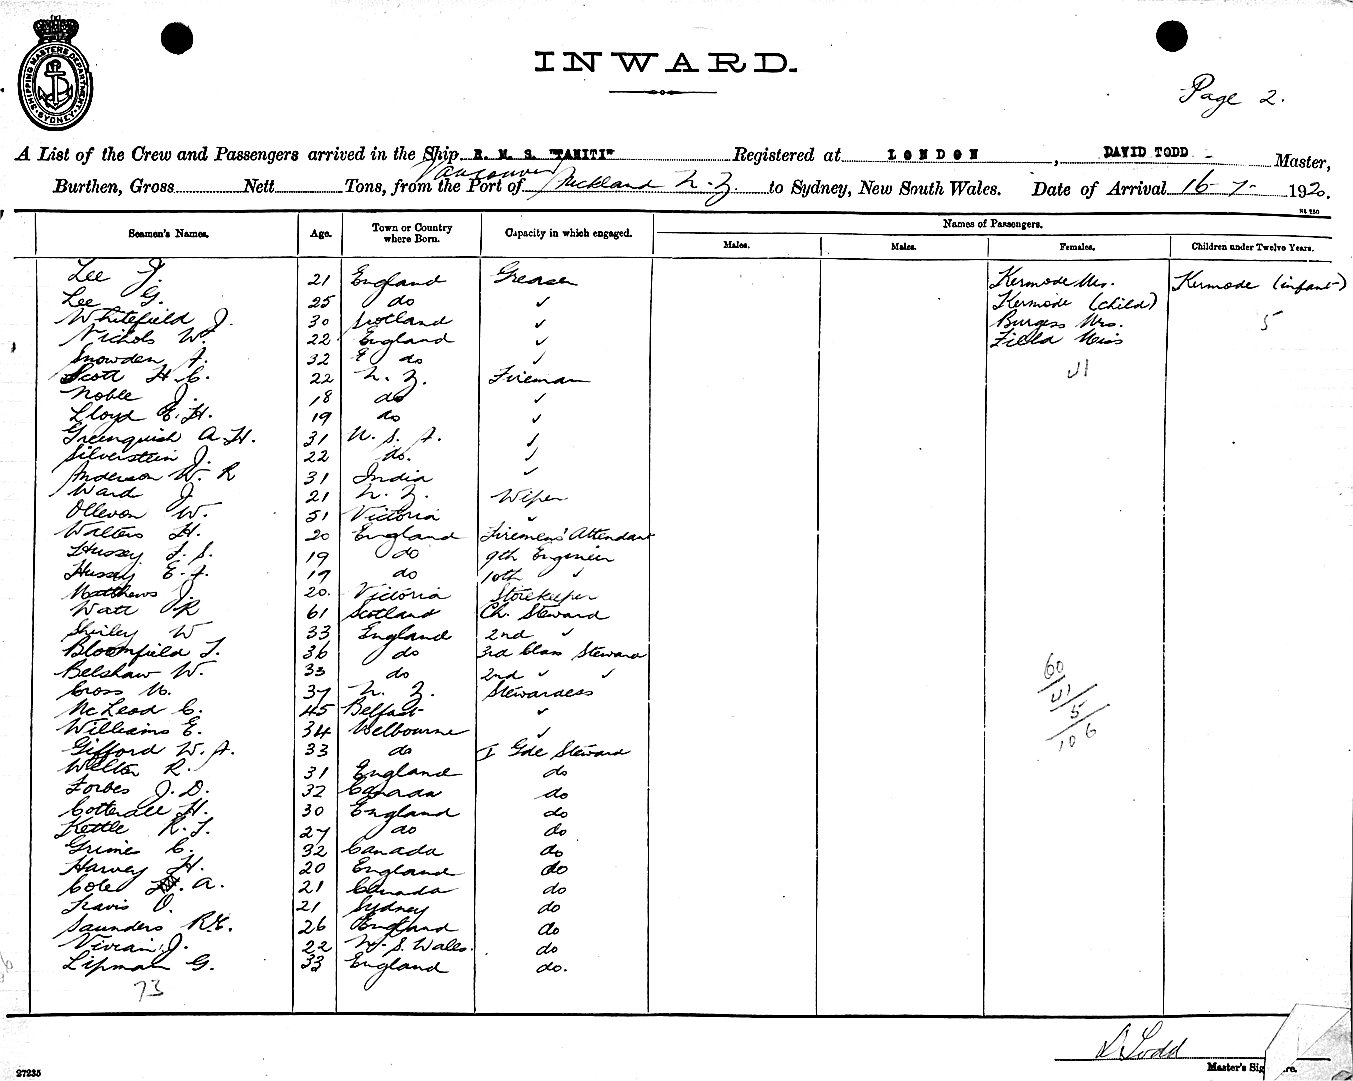 SHIPPING MASTERS DEPARTMENT SYDNEY
INWARD.
Page 2.
A List of the Crew and Passengers arrived in the Ship R. M. S. "TAHITI" Registered at LONDON, DAVID TODD Master,
Vancouver
Burthen, Gross Nett Tons, from the Port of Auckland N.Z. to Sydney, New South Wales. Date of Arrival 16-7- 1920.
Names of Passengers.
Seamen's Names. Age. Town or Country where Born. Capacity in which engaged. Males. Males. Females. Children under Twelve Years.
Lee J. 21 England Greaser Kermode Mrs. Kermode (infant)
Lee G. 25 do ✓ Kermode (child)
Whitefield J. 30 Scotland ✓ Burgess Mrs. 5
Nichols W. 22 England ✓ Field Miss
Snowden A. 32 do ✓
Scott H.C. 22 N.Z. Fireman 41
Noble J. 18 do ✓
Lloyd E.H. 19 do ✓
Greenquish A.H. 31 U.S.A. ✓
Silverstein J. 22 do. ✓
Anderson W.R 31 India ✓
Ward J. 21 N.Z. Wiper
Ollevon W. 51 Victoria ✓
Walters H. 20 England Firemens' Attendant
Hussey F.S. 19 do 9th Engineer
Hussey E.A. 19 do 10th ✓
Matthews J. 20. Victoria Storekeeper
Watt R 61 Scotland Ch. Steward
Shirley W 33 England 2nd ✓
Bloomfield T. 36 do 3rd Class Steward
Belshaw W. 33 do 2nd ✓ ✓
Cross M. 37 N.Z. Stewardess
McLeod C. 45 Belfast ✓
Williams E. 34 Melbourne ✓
Gifford W.A. 33 do I Gde Steward
Walter R. 31 England do
Forbes J.D. 32 Canada do
Cotterall H. 30 England do
Kettle R.T. 27 do do
Grimes C. 32 Canada do
Harvey H. 20 England do
Cole A. 21 Canada do
Travis O. 21 Sydney do
Saunders R.E. 26 England do
Vivian J. 22 N.S. Wales. do
Lipman G. 33 England do.
60
41
5
106
73
D Todd
Master's Sig re.
27235